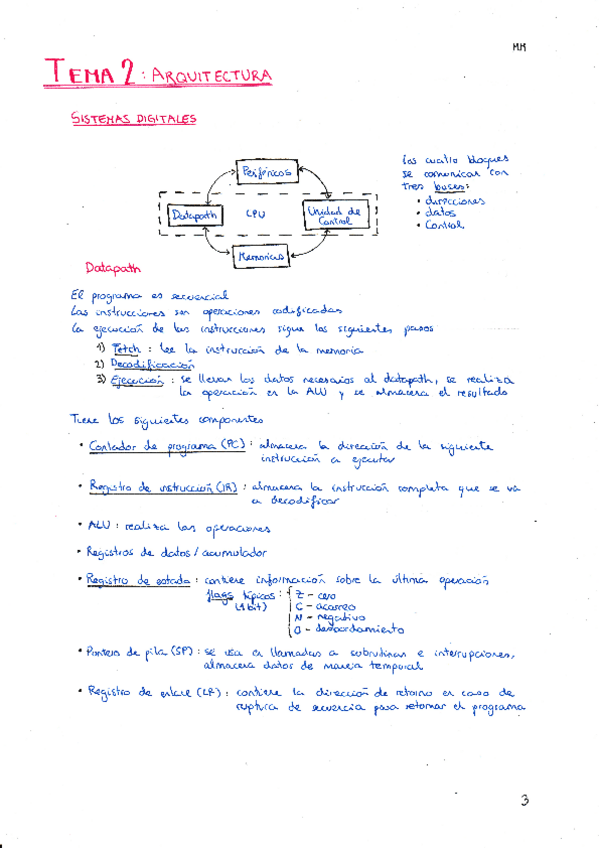 MM
TEMA 2: ARQUITECTURA
SISTEMAS DIGITALES
Periféricos
Datapath
CPU
Unidad de
Control
Memorias
Los cuatro bloques
se comunican con
tres buses:
• direcciones
• datos
• Control
Datapath
El programa es secuencial
Las instrucciones son operaciones codificadas
La ejecución de las instrucciones sigue los siguientes pasos
1) Fetch: lee la instrucción de la memoria
2) Decodificación
3) Ejecución: se llevan los datos necesarios al datapath, se realiza
la operación en la ALU y se almacena el resultado
Tiene los siguientes componentes
• Contador de programa (PC): almacena la dirección de la siguiente
instrucción a ejecutar
• Registro de instrucción (IR): almacena la instrucción completa que se va
a decodificar
• ALU: realiza las operaciones
• Registros de datos / acumulador
• Registro de estado: contiene información sobre la última operación
flags típicos: Z - cero
(1 bit) C - acarreo
N - negativo
O - desbordamiento
• Puntero de pila (SP): se usa en llamadas a subrutinas e interrupciones,
almacena datos de manera temporal
• Registro de enlace (LR): contiene la dirección de retorno en caso de
ruptura de secuencia para retomar el programa
3